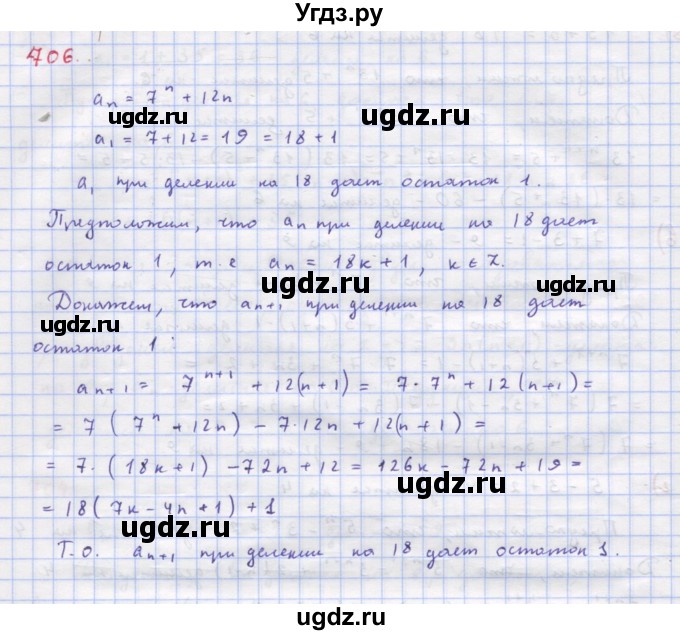 Угдз.ру
706.
aₙ = 7ⁿ + 12n
ugdz.ru
ugdz.ru
a₁ = 7 + 12 = 19 = 18 + 1
a₁ при делении на 18 дает остаток 1.
Предположим, что aₙ при делении на 18 дает
остаток 1, т.е aₙ = 18k + 1, k ∈ Z.
ugdz.ru
ugdz.ru
Докажем, что aₙ₊₁ при делении на 18 дает
ugdz.ru
остаток 1:
ugdz.ru
aₙ₊₁ = 7ⁿ⁺¹ + 12(n+1) = 7·7ⁿ + 12(n+1) =
= 7(7ⁿ + 12n) - 7·12n + 12(n+1) =
ugdz.ru
= 7·(18k+1) - 72n + 12 = 126k - 72n + 19 =
ugdz.ru
= 18(7k - 4n + 1) + 1
ugdz.ru
Т.О. aₙ₊₁ при делении на 18 дает остаток 1.
ugdz.ru
ugdz.ru